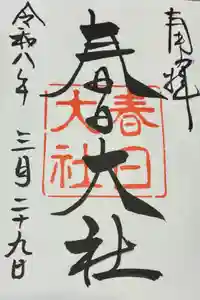 奉拝
春日大社
春日
大社
令和八年
三月二十九日